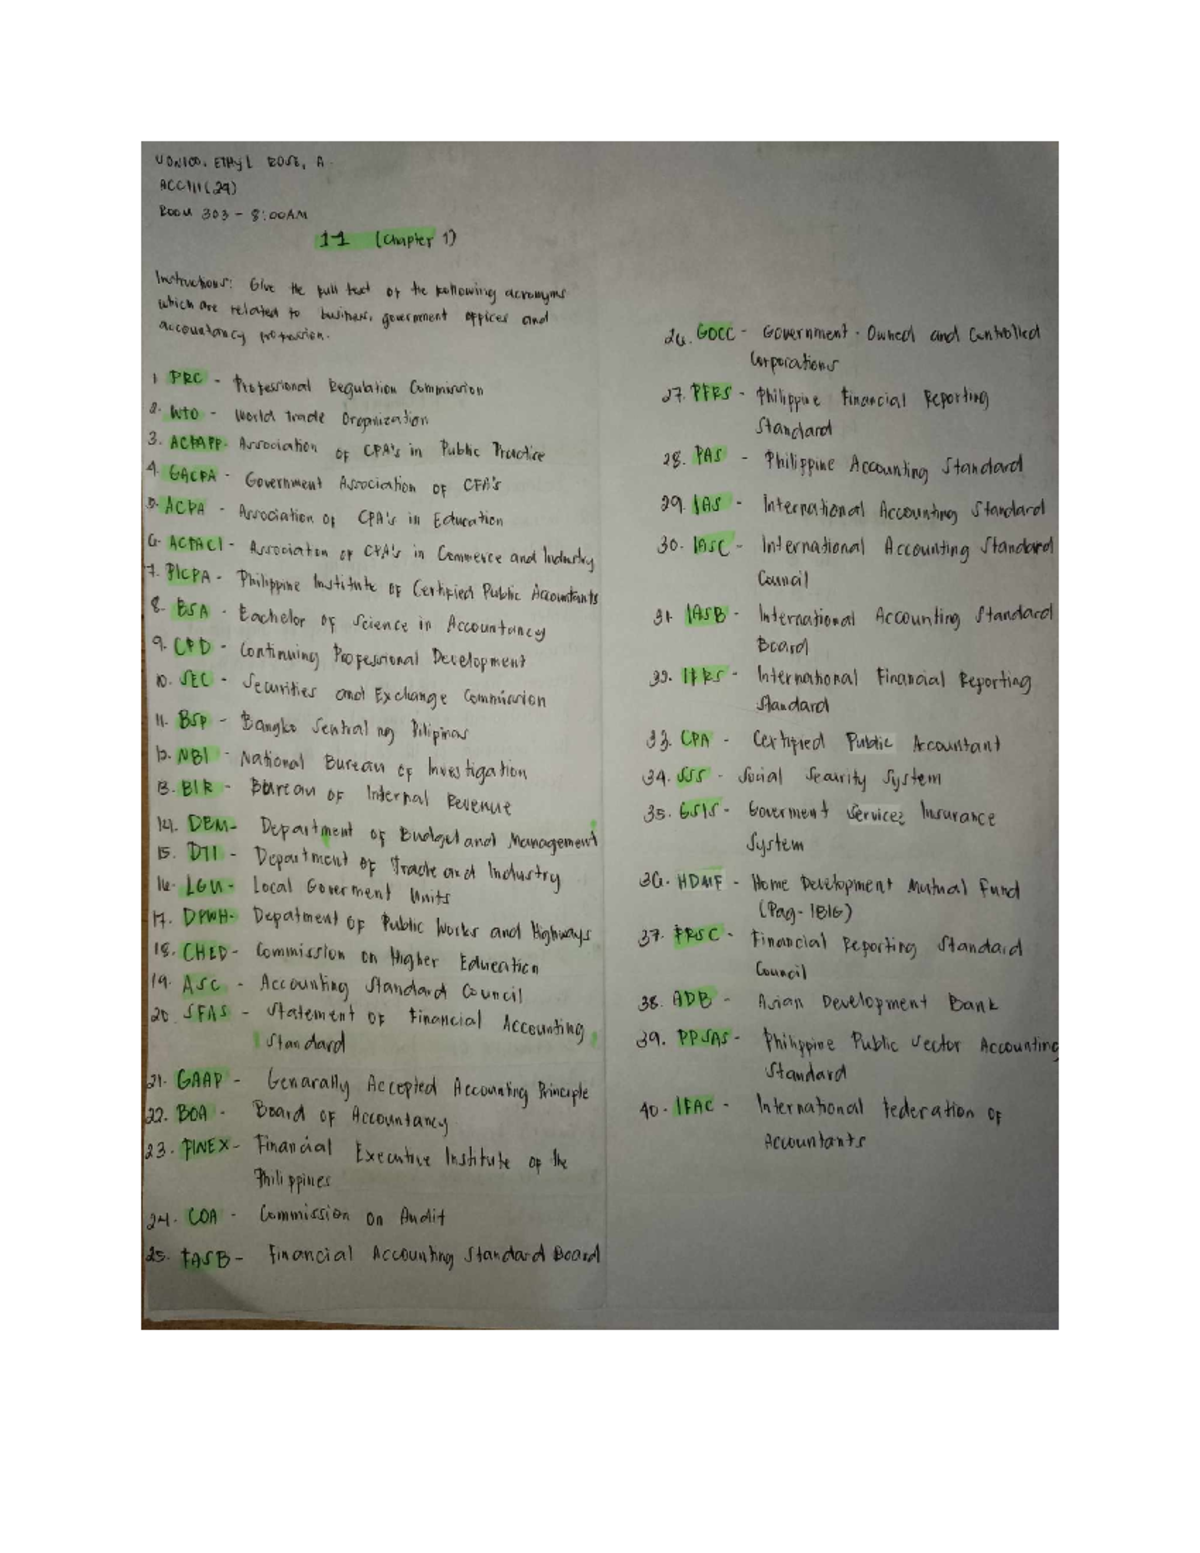 ETHYL ROSE, A.
ACC111(29)
ROOM 303 - 8:00AM
1-1 (Chapter 1)
Instructions: Give the full text of the following acronyms
which are related to business, government offices and
accountancy profession.
1. PRC - Professional Regulation Commission
2. WTO - World Trade Organization
3. ACPAPP - Association of CPA's in Public Practice
4. GACPA - Government Association of CPA's
5. ACPA - Association of CPA's in Education
6. ACPACI - Association of CPA's in Commerce and Industry
7. PICPA - Philippine Institute of Certified Public Accountants
8. BSA - Bachelor of Science in Accountancy
9. CPD - Continuing Professional Development
10. SEC - Securities and Exchange Commission
11. BSP - Bangko Sentral ng Pilipinas
12. NBI - National Bureau of Investigation
13. BIR - Bureau of Internal Revenue
14. DBM - Department of Budget and Management
15. DTI - Department of Trade and Industry
16. LGU - Local Goverment Units
17. DPWH - Depatment of Public Works and Highways
18. CHED - Commission on Higher Education
19. ASC - Accounting Standard Council
20. SFAS - Statement of Financial Accounting
Standard
21. GAAP - Genarally Accepted Accounting Principle
22. BOA - Board of Accountancy
23. FINEX - Financial Executive Institute of the
Philippines
24. COA - Commission on Audit
25. FASB - Financial Accounting Standard Board
26. GOCC - Government - Owned and Controlled
Corporations
27. PFRS - Philippine Financial Reporting
Standard
28. PAS - Philippine Accounting Standard
29. IAS - International Accounting Standard
30. IASC - International Accounting Standard
Council
31. IASB - International Accounting Standard
Board
32. IFRS - International Financial Reporting
Standard
33. CPA - Certified Public Accountant
34. SSS - Social Security System
35. GSIS - Goverment Service Insurance
System
36. HDMF - Home Development Mutual Fund
(Pag-IBIG)
37. FRSC - Financial Reporting Standard
Council
38. ADB - Asian Development Bank
39. PPSAS - Philippine Public Sector Accounting
Standard
40. IFAC - International Federation of
Accountants